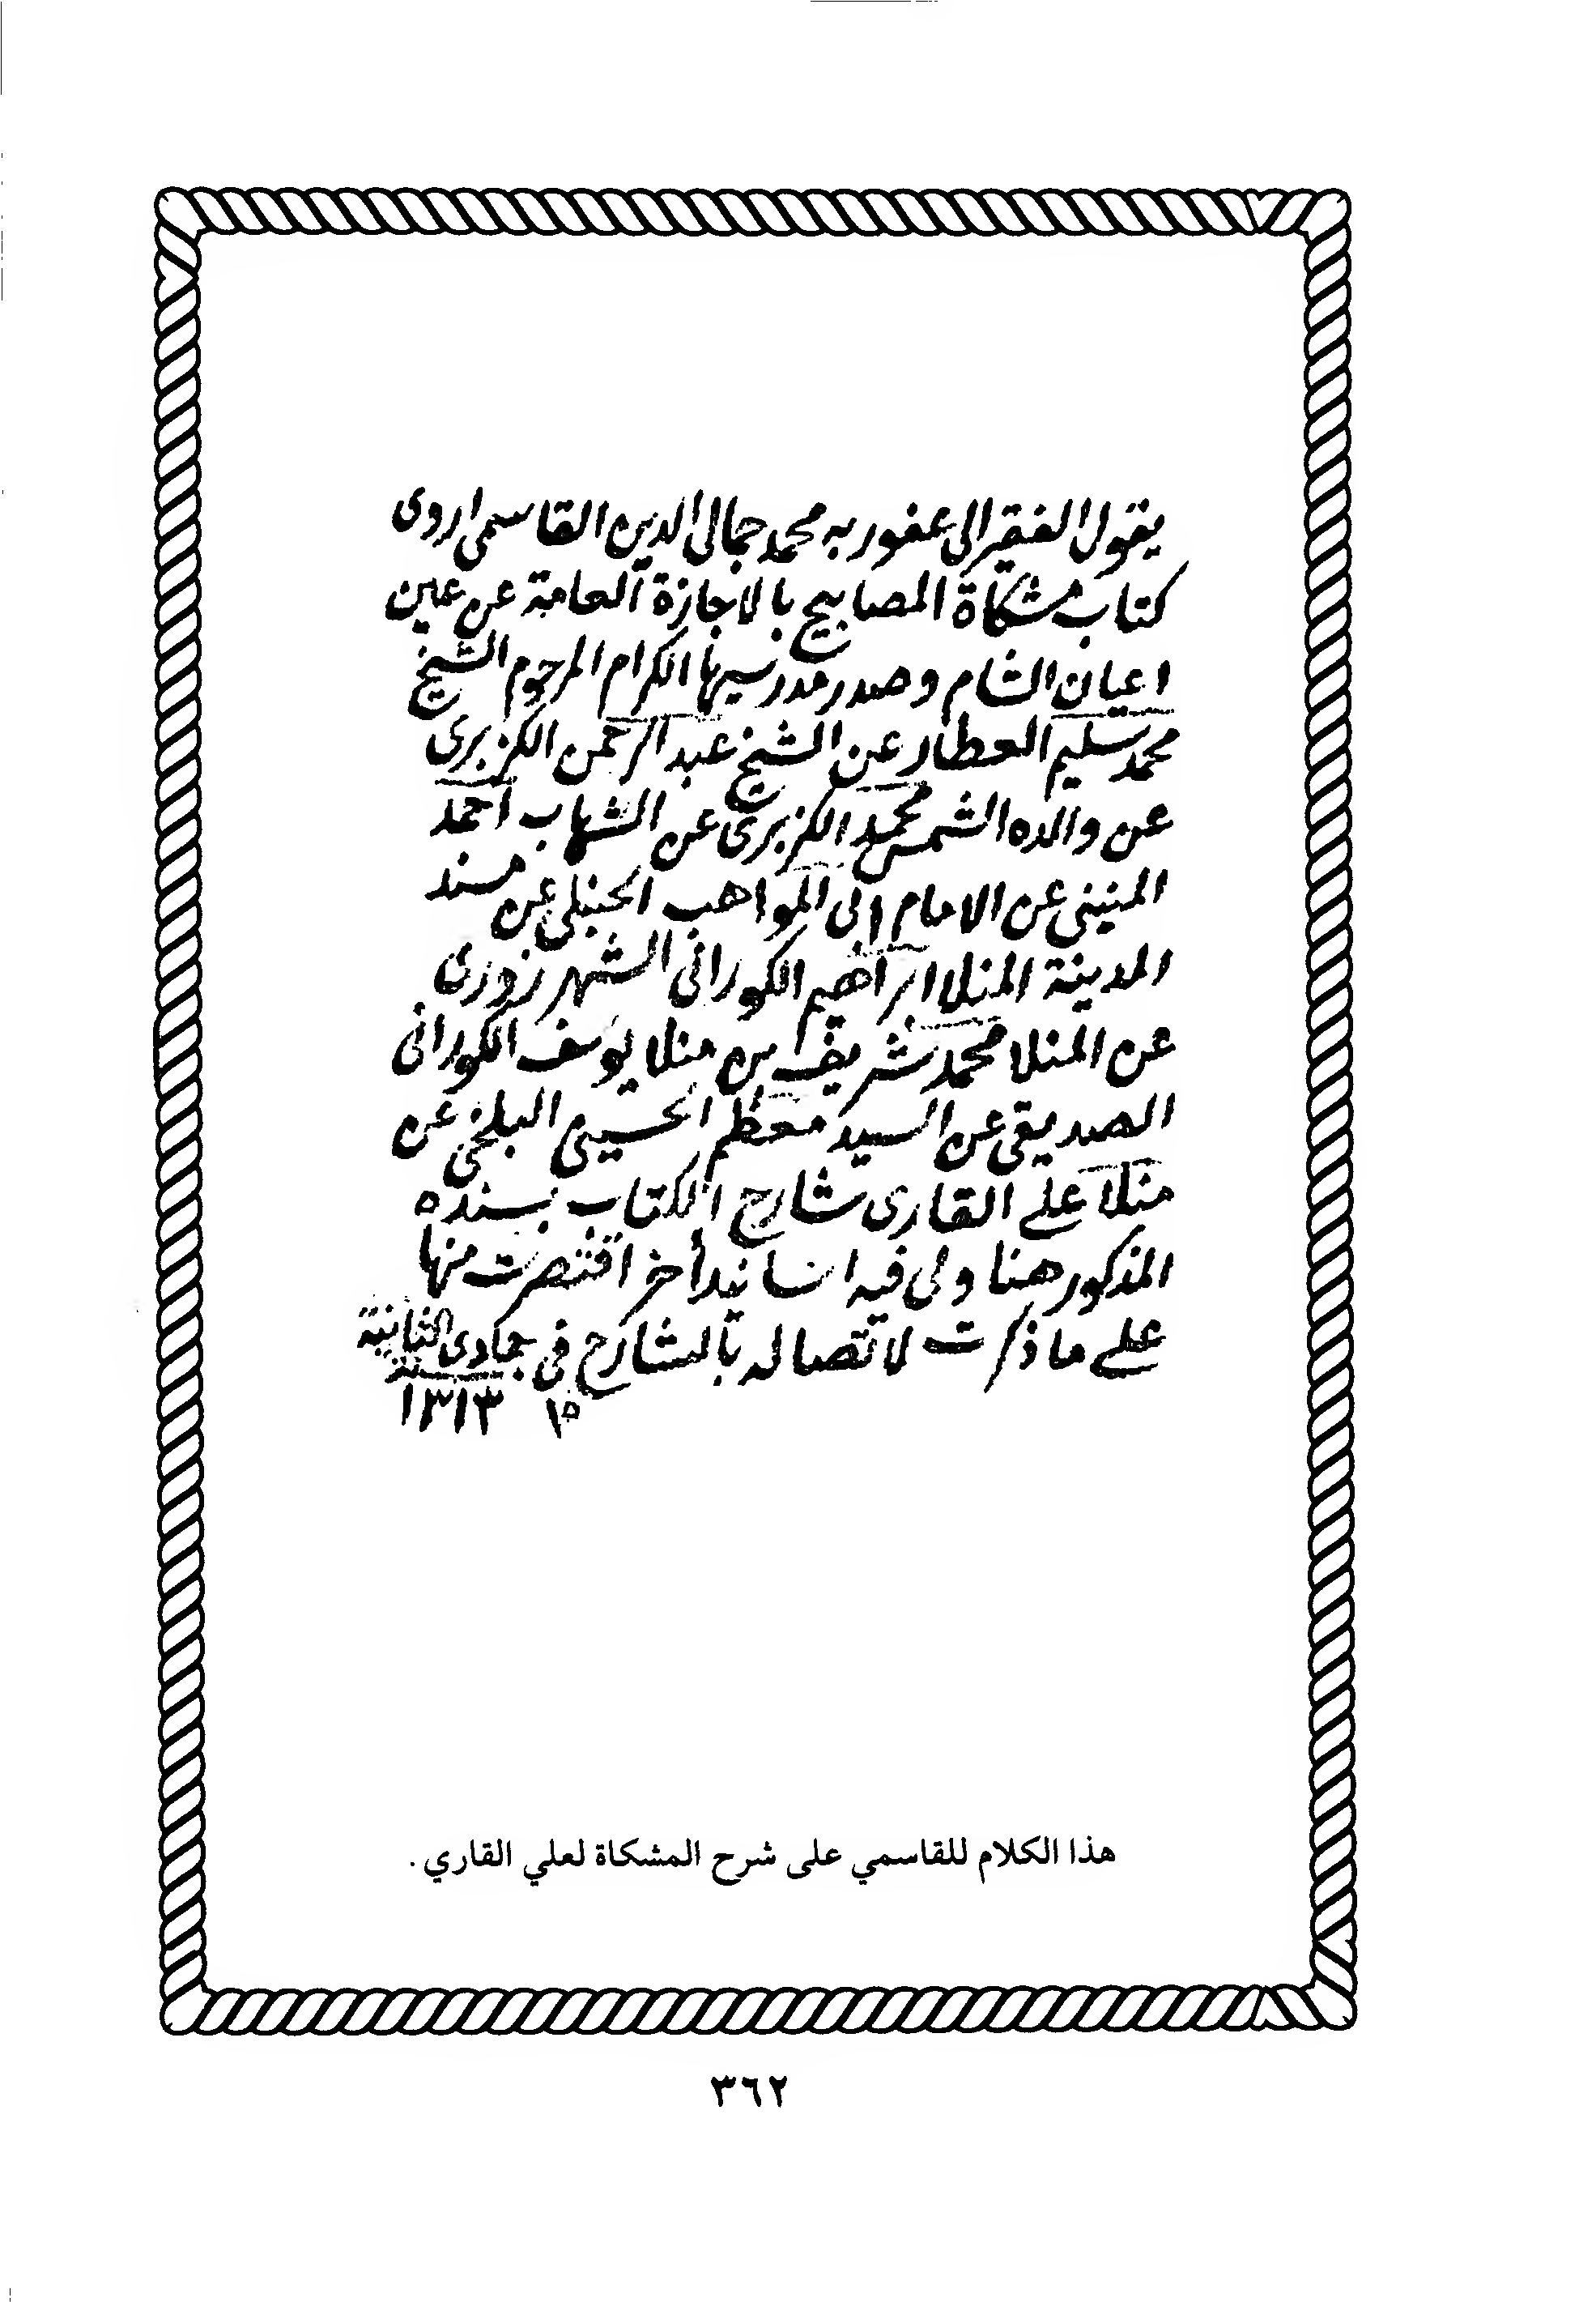 يقول الفقير الى عفو ربه محمد جمال الدين القاسمى اروى
كتاب مشكاة المصابيح بالاجازة العامة عن عين
اعيان الشام وصدر مدرسيها الكرام المرحوم الشيخ
محمد سليم العطار عن الشيخ عبد الرحمن الكزبرى
عن والده الشمس محمد الكزبرى عن الشهاب احمد
المنينى عن الامام ابى المواهب الحنبلى عن مسند
المدينة المنلا ابراهيم الكورانى الشهرزورى
عن المنلا محمد شريف بن منلا يوسف الكورانى
الصديقى عن السيد معظم الحسينى البلخى عن
منلا على القارى شارح الكتاب بسنده
المذكور هنا ولى فيه اسانيد أخر اقتصرت منها
على ما ذكرت لاتصاله بالشارح فى جمادى الثانية
١٥ سنة ١٣١٣
هذا الكلام للقاسمي على شرح المشكاة لعلي القاري .
٣٦٢